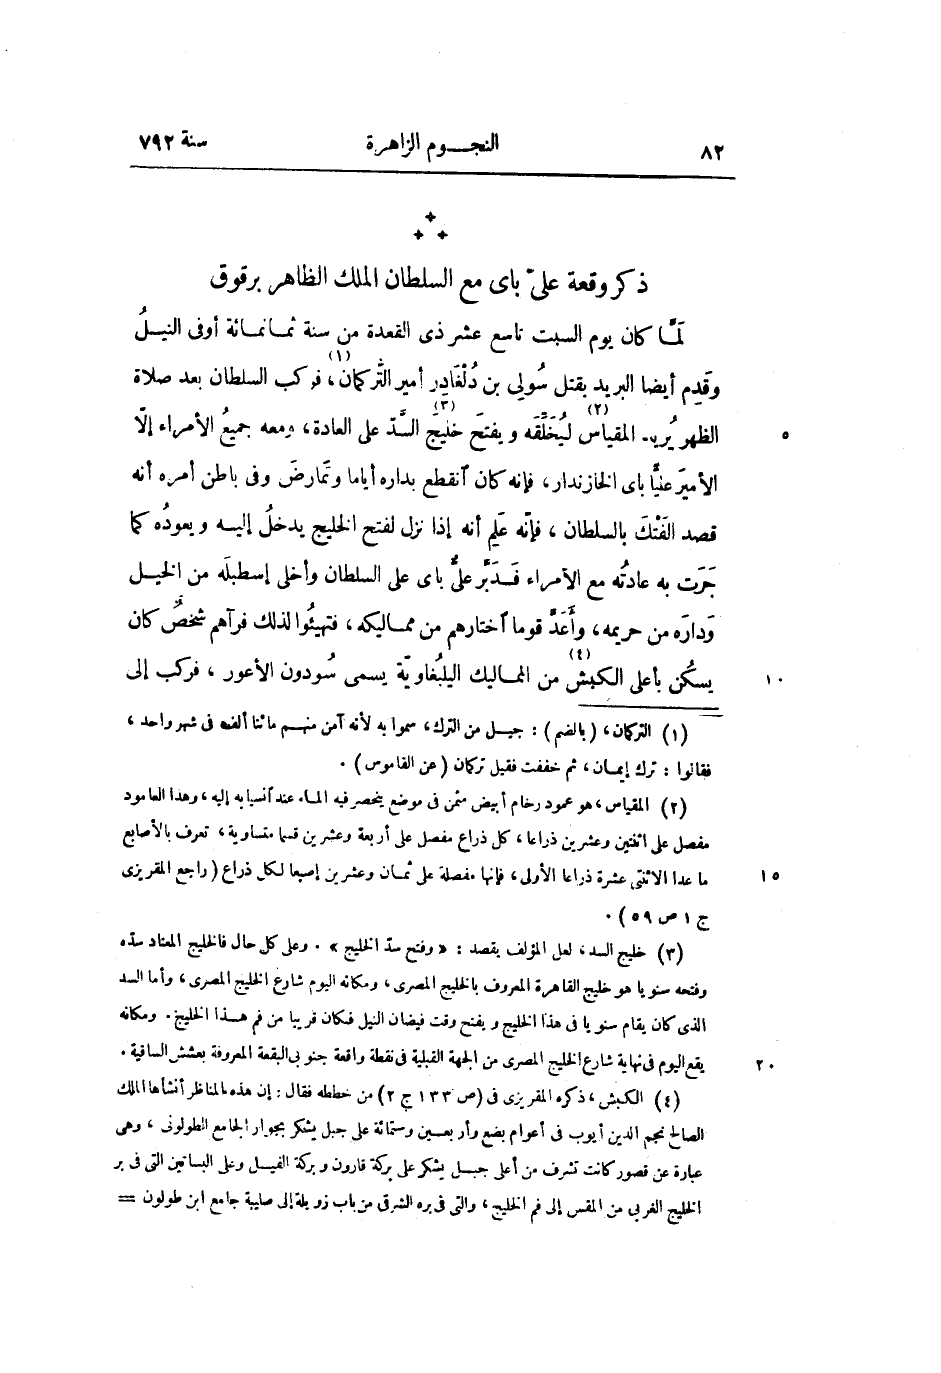 ٨٢ النجـــوم الزاهرة سنة ٧٩٢
ذكر وقعة علىّ باى مع السلطان الملك الظاهر برقوق
لمَّا كان يوم السبت تاسع عشر ذى القعدة من سنة ثمـانمـائة أوفى النيلُ
وقَدِم أيضا البريد بقتل سُولى بن دُلْغَادِر أمير التُّركمان(١)، فركب السلطان بعد صلاة
الظهر يُريد المقياس(٢) ليُخَلِّقَه ويفتحَ خليجَ السَّدّ(٣) على العادة، ومعه جميعُ الأمراء إلّا ٥
الأميرَ عليًّا باى الخازندار، فإنه كان آنقطع بداره أياما وتمارضَ وفى باطن أمره أنه
قصد الفَتْكَ بالسلطان، فإنّه عَلِم أنه إذا نزل لفتح الخليج يدخلُ إليــه ويعودُه كما
جَرَت به عادتُه مع الأمراء فَـدَبَّر علىٌّ باى على السلطان وأخلى إسطبلَه من الخيـل
ودارَه من حريمه، وأَعَدَّ قوما آختارهم من ممـاليكه، فتهيئُوا لذلك فرآهم شخصٌ كان
يسكُن بأعلى الكبش(٤) من المماليك اليلبُغاويّة يسمى سُودون الأعور، فركب إلى ١٠
(١) التركمان، (بالضم): جيـل من الترك، سموا به لأنه آمن منهـم مائتا ألف فى شهر واحد،
فقالوا: ترك إيمـان، ثم خففت فقيل تركمان (عن القاموس).
(٢) المقياس، هو عمود رخام أبيض مثمن فى موضع ينحصر فيه المـاء عند آنسيابه إليه، وهذا العامود
مفصل على اثنتين وعشرين ذراعا، كل ذراع مفصل على أربعة وعشرين قسما متساوية، تعرف بالأصابع
ما عدا الاثنتى عشرة ذراعا الأولى، فإنها مفصلة على ثمـان وعشرين إصبعا لكل ذراع (راجع المقريزى ١٥
ج ١ ص ٥٩).
(٣) خليج السد، لعل المؤلف يقصد: «وفتح سدّ الخليج». وعلى كل حال فالخليج المعتاد سدّه
وفتحه سنويا هو خليج القاهرة المعروف بالخليج المصرى، ومكانه اليوم شارع الخليج المصرى، وأما السد
الذى كان يقام سنويا فى هذا الخليج ويفتح وقت فيضان النيل فكان قريبا من فم هـذا الخليج. ومكانه
يقع اليوم فى نهاية شارع الخليج المصرى من الجهة القبلية فى نقطة واقعة جنوبى البقعة المعروفة بعشش الساقية. ٢٠
(٤) الكبش، ذكره المقريزى فى (ص ١٣٣ ج ٢) من خططه فقال: إن هذه المناظر أنشأها الملك
الصالح نجم الدين أيوب فى أعوام بضع وأربعـين وستمائة على جبل يشكر بجوار الجامع الطولونى، وهى
عبارة عن قصور كانت تشرف من أعلى جبـل يشكر على بركة قارون وبركة الفيـل وعلى البساتين التى فى بر
الخليج الغربى من المقس إلى فم الخليج، والتى فى بره الشرقى من باب زويلة إلى صليبة جامع ابن طولون =